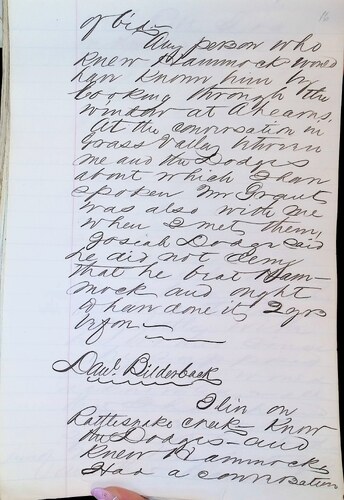 of him
Any person who
knew Hammock would
have known him by
looking through the
window at Ahearns.
At the conversation in
Grass Valley between
me and the Dodges
about which I have
spoken Mr Grant
was also with me
when I met them,
Josiah Dodge said
he did not deny
that he beat Ham-
mock and ought
to have done it 2 yrs
before
Danl. Bilderback
I live on
Rattlesnake creek know
the Dodges and
knew Hammock,
Had a conversation